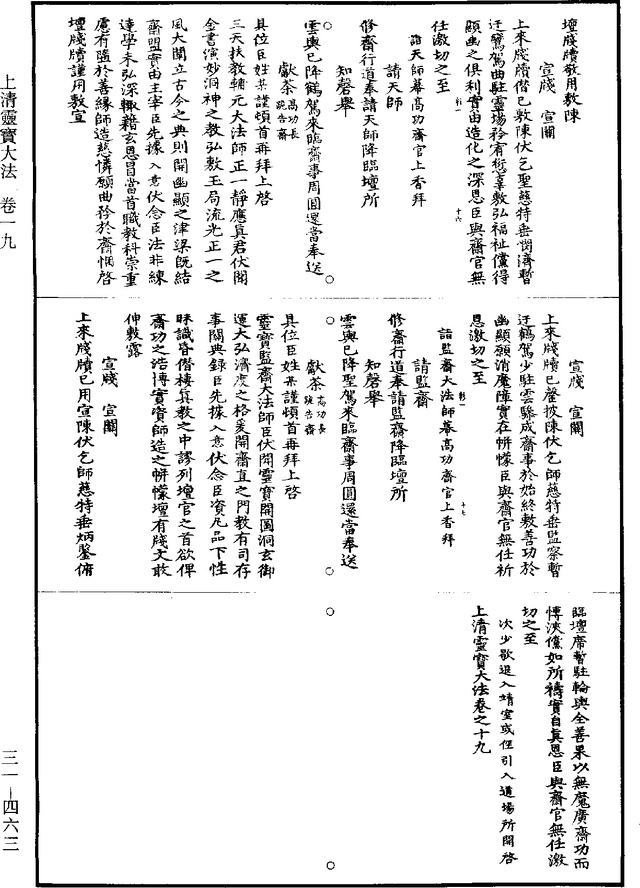 壇牋牘敬用敷陳
宣牋　宣關
上來牋牘偕已敷陳伏乞聖慈特垂閔濟暫
迂鸞駕曲駐靈場矜宥愆辜敷弘福祉儻得
顯幽之俱利實由造化之深恩臣與齋官無
任激切之至
詣天師幕高功齋官上香拜
請天師
修齋行道奉請天師降臨壇所
知磬舉
雲輿已降鶴駕來臨齋事周圓還當奉送
獻茶 高功長跪告齋
具位臣姓某謹頓首再拜上啓
三天扶教輔元大法師正一靜應真君伏聞
金書演妙洞神之教弘敷玉局流光正一之
風大闡立古今之典則開幽顯之津梁既結
齋盟實由主宰臣先據入意伏念臣法非練
達學未弘深輙藉玄恩冒當首職教科崇重
慮有墮於善緣師造慈憐願曲矜於齋悃啓
壇牋牘謹用敷宣
宣牋　宣關
上來牋牘已罄披陳伏乞師慈特垂監察暫
迂鶴駕少駐雲驂成齋事於始終敷善功於
幽顯願消魔障實在帡幪臣與齋官無任祈
恩激切之至
詣監齋大法師幕高功齋官上香拜
請監齋
修齋行道奉請監齋降臨壇所
知磬舉
雲輿已降聖駕來臨齋事周圓還當奉送
獻茶 高功長跪告齋
具位臣姓某謹頓首再拜上啓
靈寶監齋大法師臣伏聞靈寶開圖洞玄御
運大弘濟度之格爰開齋直之門教有司存
事關典錄臣先據入意伏念臣資凡品下性
昧識昏僭棲真教之中謬列壇官之首欲俾
齋功之浩博實資師造之帡幪壇有牋文敢
伸敷露
宣牋　宣關
上來牋牘已用宣陳伏乞師慈特垂炳鑒俯
臨壇席暫駐輪輿全善果以無魔廣齋功而
愽浹儻如所禱實自真恩臣與齋官無任激
切之至
次少歇退入靖室或但引入道場所開啓
上清靈寶大法卷之十九
上清靈寶大法　卷一九
三一—四六三